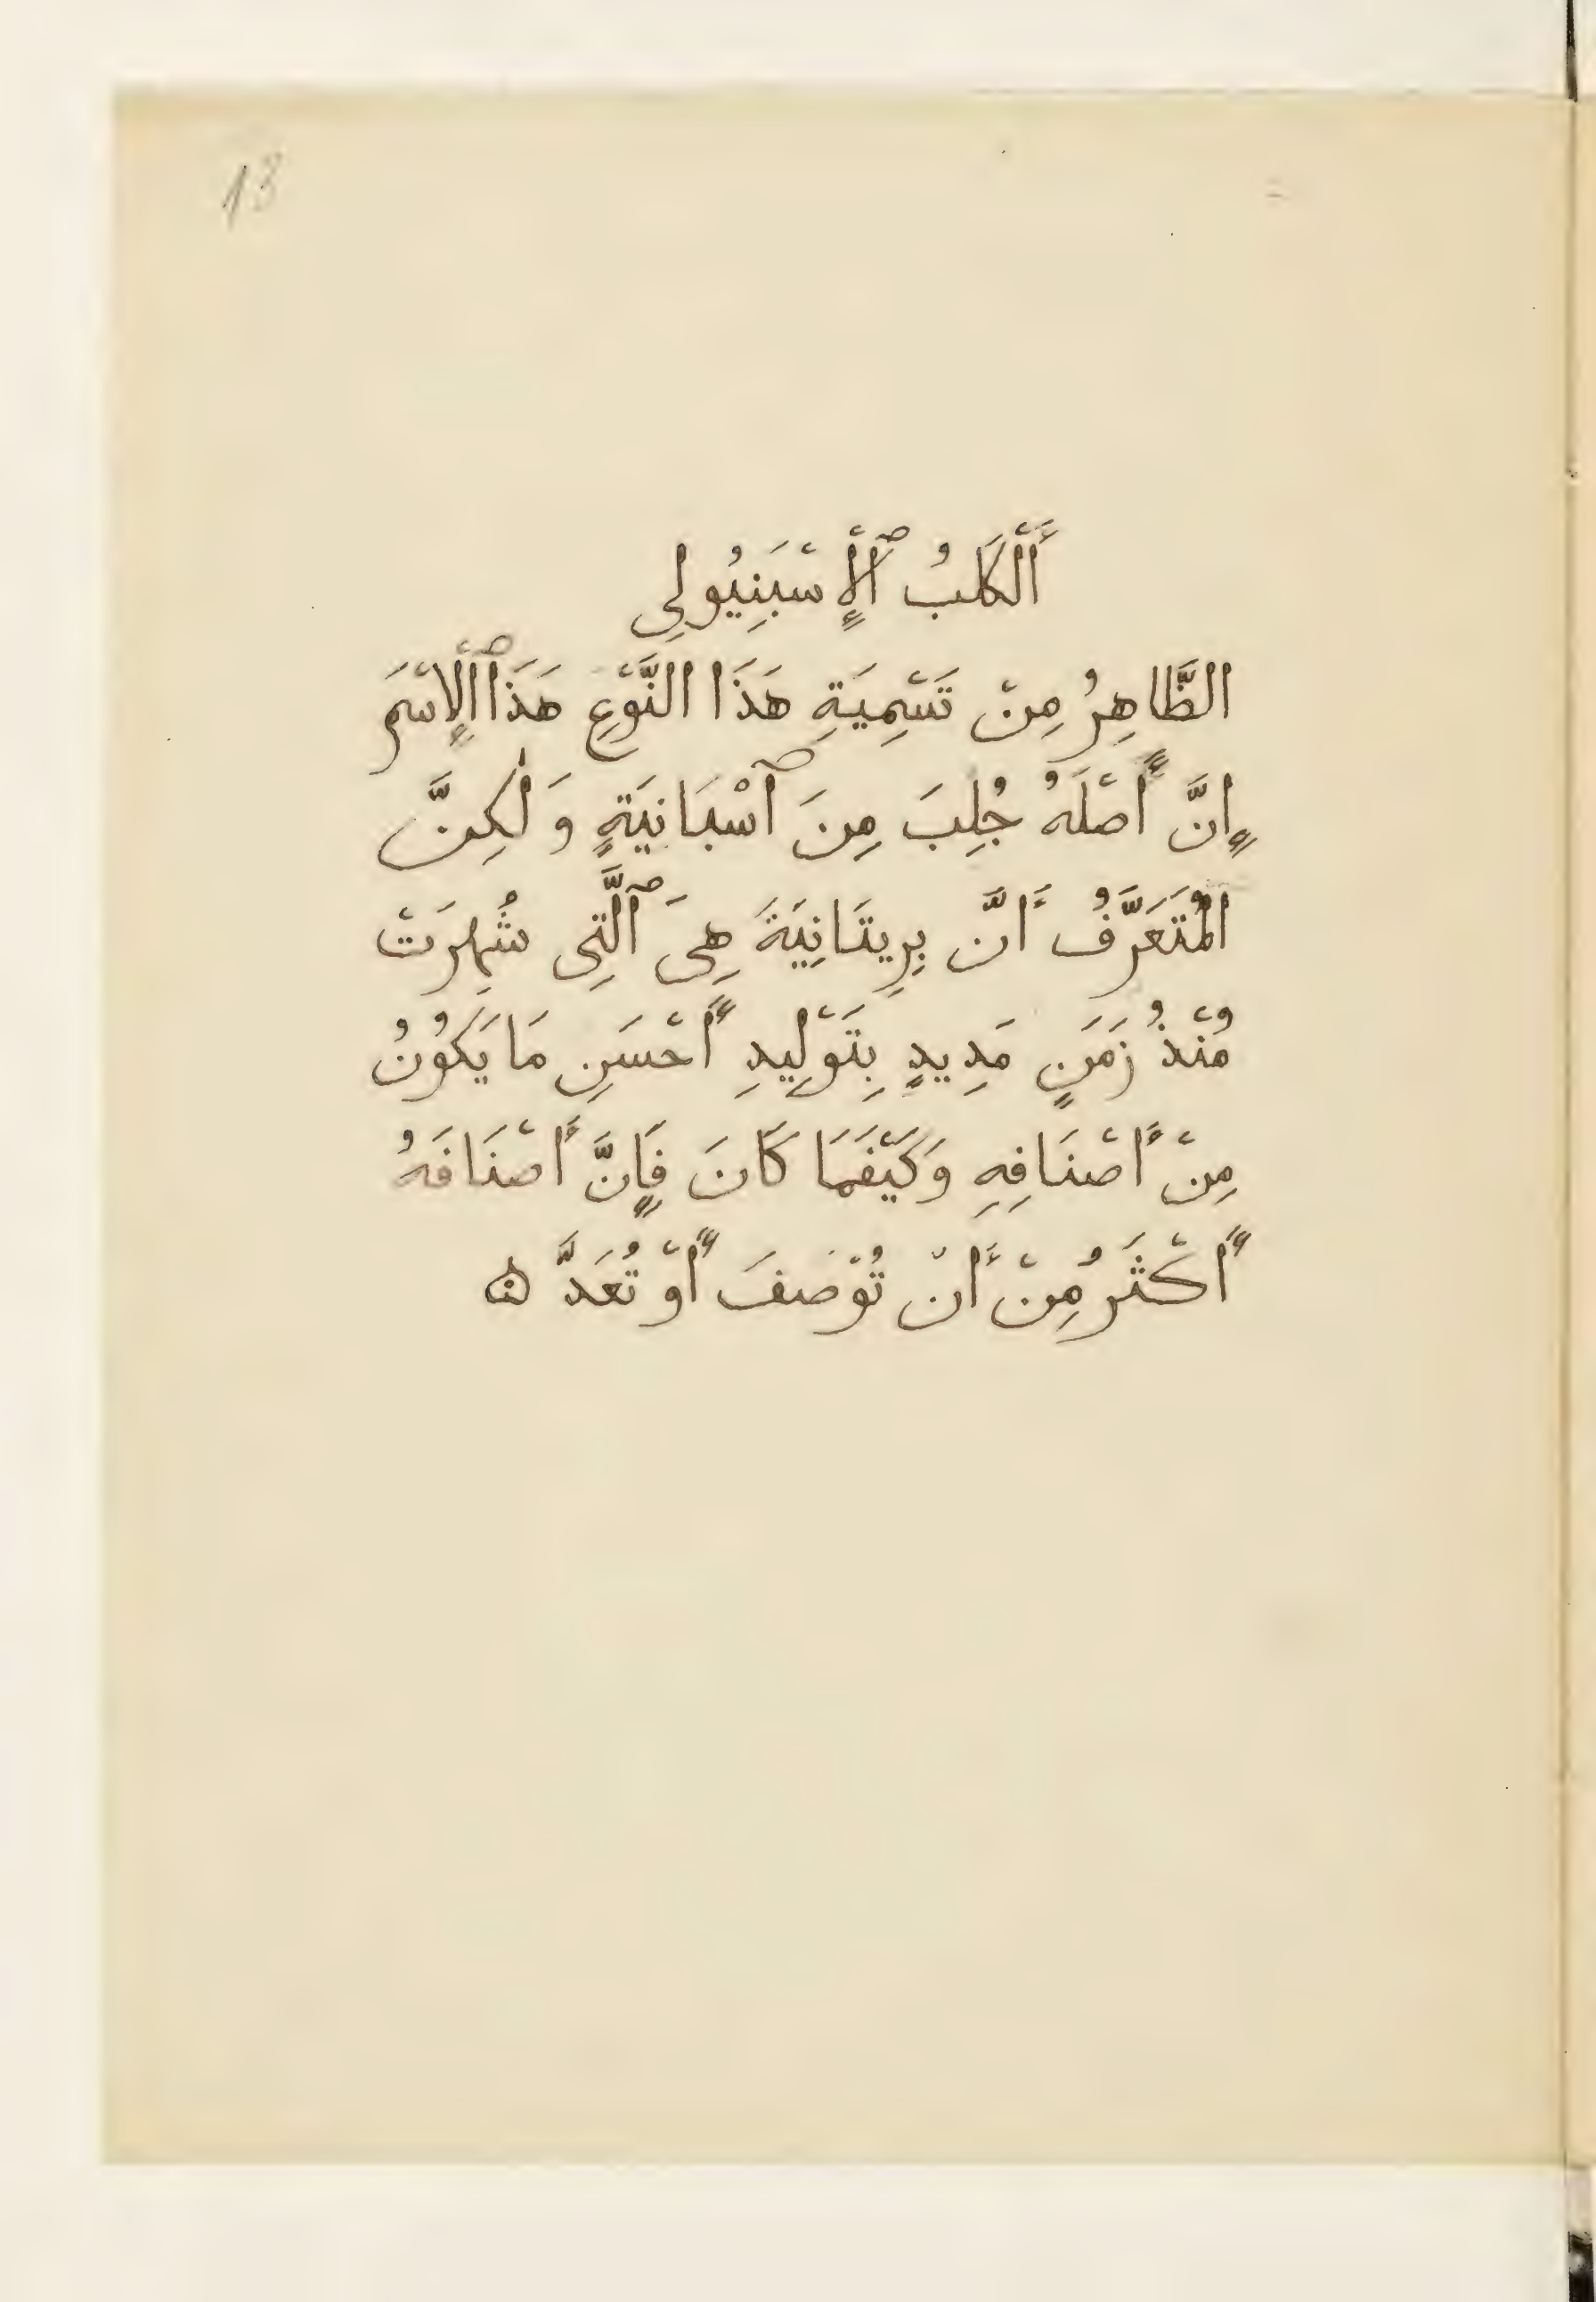 13
أَلْكَلْبُ ٱلْإِسْبَنِيُولِي
الظَّاهِرُ مِنْ تَسْمِيَةِ هَذَا النَّوْعِ هَذَا ٱلْإِسْمَ
إِنَّ أَصْلَهُ جُلِبَ مِنَ ٱسْبَانِيَةٍ وَلٰكِنَّ
الْمُتَعَرَّفُ أَنَّ بِرِيتَانِيَةَ هِىَ ٱلَّتِى شُهِرَتْ
مُنْذُ زَمَنٍ مَدِيدٍ بِتَوْلِيدِ أَحْسَنِ مَا يَكُونُ
مِنْ أَصْنَافِهِ وَكَيْفَمَا كَانَ فَإِنَّ أَصْنَافَهُ
أَكْثَرُ مِنْ أَنْ تُوْصَفَ أَوْ تُعَدَّ ۞